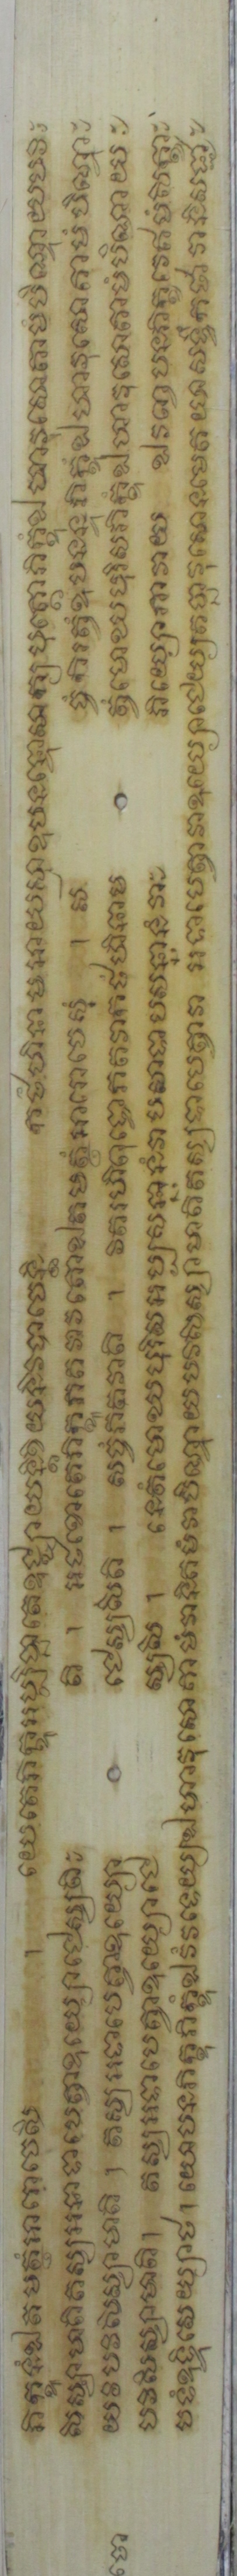 ភិក្ខូនំឯតមត្ថំអារោចេសិ ។ យេតេភិក្ខូអប្បិច្ឆាតេឧជ្ឈាយន្តិខិយន្តិវិបាចេន្តិ កថំហិនាមអាយស្មាឧបនន្ទោសក្យបុត្តោភិក្ខុំឯហាវុសោគាមំបិណ្ឌាយបវិ
សិស្សាមាតិតស្សអទាបេត្វាឧយ្យោជេស្សតី តិ ។ អថខោតេភិក្ខូភគវតោឯតមត្ថំអារោចេសុំ ។ ស ច្ចំកិរត្វំឧបនន្ទភិក្ខុំឯហាវុសោគាមំបិណ្ឌា
ចោ យបវិសិស្សាមាតិ ។ តស្សអទាបេត្វាឧយ្យោ ជេស្សសីតិ ។ សច្ចំភគវាតិ ។ វិគរហិពុទ្ធោភគវាកថំហិនាម ត្វំមោឃបុរិសភិក្ខុំឯហាវុសោគាមំបិណ្ឌាយ
បវិសិស្សាមាតិ ។ តស្សអទាបេត្វាឧយ្យោជេ ស្សសិ ។ នេតំមោឃបុរិសអប្បសន្នានំវាបសាទាយបសន្នានំវា ភិយ្យោភាវាយ ឯវញ្ចបនភិក្ខវេឥមំសិក្ខា
បទំឧទ្ទិសេយ្យាថ ។ យោបនភិក្ខុភិក្ខុំឯវំវទេយ្យឯហាវុសោគាមំវានិគមំវាបិណ្ឌាយបវិសិស្សាមាតិតស្សទាបេត្វាវា អទាបេត្វាវាឧយ្យោជេយ្យគច្ឆាវុសោនមេតយាសទ្ធឹកថាវានិសជ្ជា